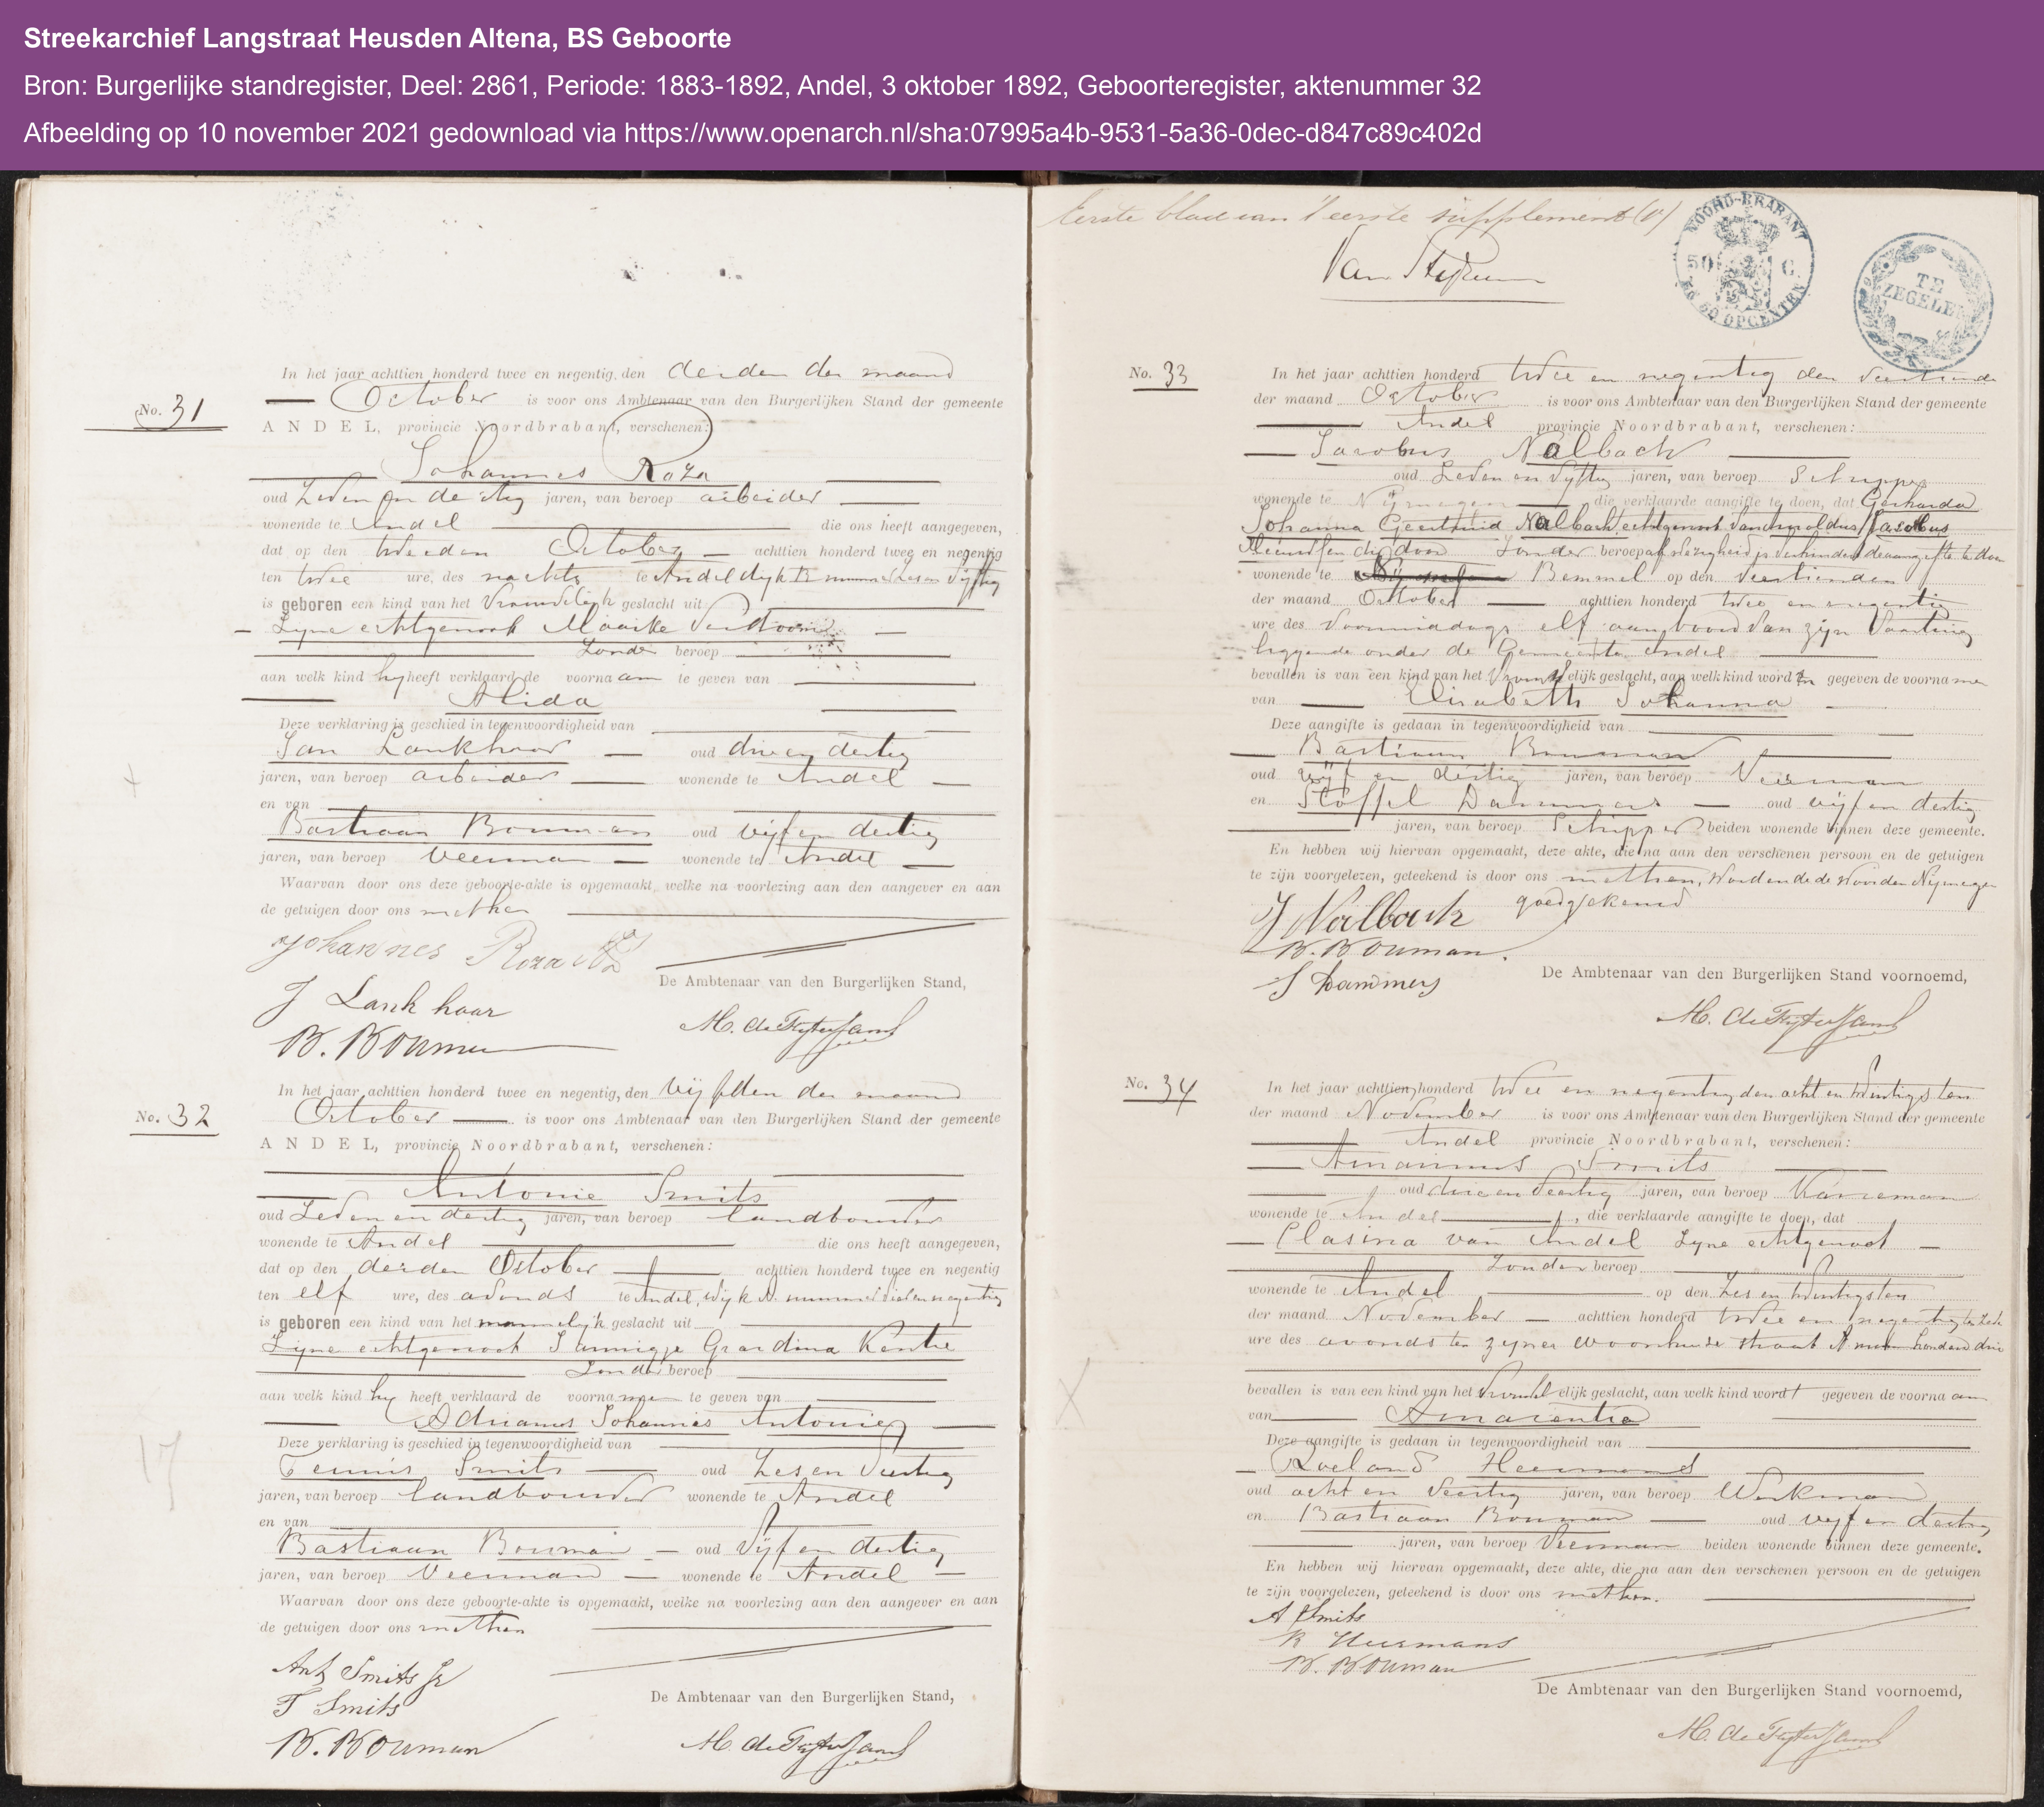 Streekarchief Langstraat Heusden Altena, BS Geboorte
Bron: Burgerlijke standregister, Deel: 2861, Periode: 1883-1892, Andel, 3 oktober 1892, Geboorteregister, aktenummer 32
Afbeelding op 10 november 2021 gedownload via https://www.openarch.nl/sha:07995a4b-9531-5a36-0dec-d847c89c402d
In het jaar achttien honderd twee en negentig, den derden der maand
No. 31
October is voor ons Ambtenaar van den Burgerlijken Stand der gemeente
ANDEL, provincie Noordbrabant, verschenen:
Johannes Roza
oud Zeven en dertig jaren, van beroep arbeider
wonende te Andel die ons heeft aangegeven,
dat op den tweeden October achttien honderd twee en negentig
ten twee ure, des nachts te Andel Wijk B nummer zes en Vijftig
is geboren een kind van het Vrouwelijk geslacht uit
Zyne echtgenoot Maaike
Zonder beroep
aan welk kind hy heeft verklaard de voornaam te geven van
Alida
Deze verklaring is geschied in tegenwoordigheid van
Jan Lankhaar oud drie en dertig
jaren, van beroep arbeider wonende te Andel
en van
Bastiaan Bouman oud vijf en dertig
jaren, van beroep Veerman wonende te Andel
Waarvan door ons deze geboorte-akte is opgemaakt, welke na voorlezing aan den aangever en aan
de getuigen door ons met hen
Johannes Roza
De Ambtenaar van den Burgerlijken Stand,
J Lankhaar
B. Bouman
M. de
In het jaar achttien honderd twee en negentig, den vijfden der maand
No. 32
October is voor ons Ambtenaar van den Burgerlijken Stand der gemeente
ANDEL, provincie Noordbrabant, verschenen:
Antonie Smits
oud Zeven en dertig jaren, van beroep landbouwer
wonende te Andel die ons heeft aangegeven,
dat op den derden October achttien honderd twee en negentig
ten elf ure, des avonds te Andel, Wijk A nummer vier en negentig
is geboren een kind van het mannelijk geslacht uit
Zyne echtgenoot Jannigje Grardina
Zonder beroep
aan welk kind hy heeft verklaard de voornamen te geven van
Adrianus Johannes Antonie
Deze verklaring is geschied in tegenwoordigheid van
Teunis Smits oud Zes en Veertig
jaren, van beroep landbouwer wonende te Andel
en van
Bastiaan Bouman oud Vijf en dertig
jaren, van beroep Veerman wonende te Andel
Waarvan door ons deze geboorte-akte is opgemaakt, welke na voorlezing aan den aangever en aan
de getuigen door ons met hen
Ant Smits Jz
T Smits
De Ambtenaar van den Burgerlijken Stand,
B. Bouman
M. de
17
Eerste blad van 't eerste supplement
Van
NOORD-BRABANT
50 C.
EN 50 OPCENTEN
TE ZEGELEN
No. 33
In het jaar achttien honderd twee en negentig den veertiende
der maand October is voor ons Ambtenaar van den Burgerlijken Stand der gemeente
Andel provincie Noordbrabant, verschenen:
Jacobus Nalbach
oud Zeven en Vijftig jaren, van beroep Schipper
wonende te Nijmegen die verklaarde aangifte te doen, dat Gerharda
Johanna Geertruid Nalbach echtgenoot van Arnoldus Jacobus
Zonder beroep afwezigheid is verhinderd de aangifte te doen
wonende te Bemmel op den veertienden
der maand October achttien honderd twee en negentig
ure des Voormiddags elf aan boord van zijn Vaartuig
liggende onder de Gemeente Andel
bevallen is van een kind van het Vrouwelijk geslacht, aan welk kind worden gegeven de voornamen
van Elisabeth Johanna
Deze aangifte is gedaan in tegenwoordigheid van
Bastiaan Bouman
oud vijf en dertig jaren, van beroep Veerman
en Stoffel Dammers oud vijf en dertig
jaren, van beroep Schipper beiden wonende binnen deze gemeente.
En hebben wij hiervan opgemaakt, deze akte, die na aan den verschenen persoon en de getuigen
te zijn voorgelezen, geteekend is door ons met hen, wordende de woorden Nijmegen
goedgekeurd
J Nalbach
B. Bouman.
S Dammers
De Ambtenaar van den Burgerlijken Stand voornoemd,
M. de
No. 34
In het jaar achttien honderd twee en negentig den acht en twintigsten
der maand November is voor ons Ambtenaar van den Burgerlijken Stand der gemeente
Andel provincie Noordbrabant, verschenen:
Smits
oud drie en Veertig jaren, van beroep
wonende te Andel, die verklaarde aangifte te doen, dat
Clasina van Andel Zyne echtgenoot
Zonder beroep
wonende te Andel op den Zes en twintigsten
der maand November achttien honderd twee en negentig te zes
ure des avonds ten zynen woonhuize straat A num honderd drie
bevallen is van een kind van het Vrouwelijk geslacht, aan welk kind wordt gegeven de voornaam
van Amarentia
Deze aangifte is gedaan in tegenwoordigheid van
Roeland Heermans
oud acht en Veertig jaren, van beroep Werkman
en Bastiaan Bouman oud vijf en dertig
jaren, van beroep Veerman beiden wonende binnen deze gemeente.
En hebben wij hiervan opgemaakt, deze akte, die na aan den verschenen persoon en de getuigen
te zijn voorgelezen, geteekend is door ons met hen.
A Smits
R Heermans
B. Bouman
De Ambtenaar van den Burgerlijken Stand voornoemd,
M. de